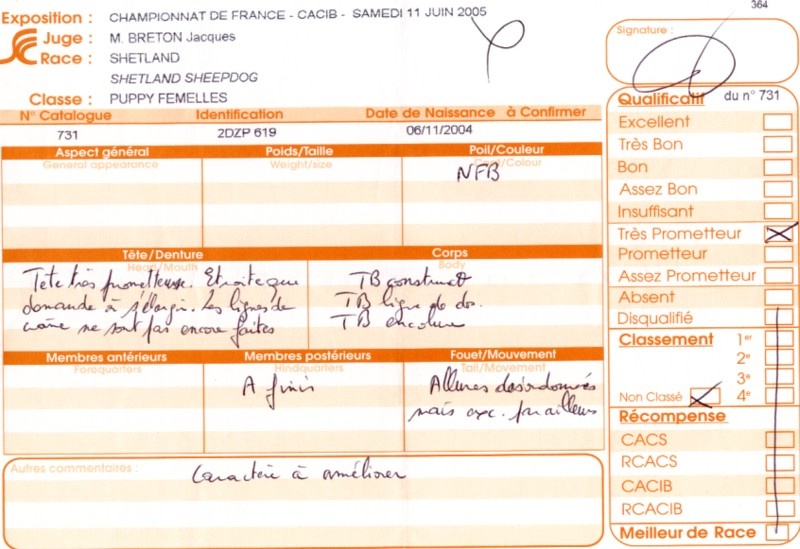 364
Exposition : CHAMPIONNAT DE FRANCE - CACIB - SAMEDI 11 JUIN 2005
Juge : M. BRETON Jacques
Race : SHETLAND
SHETLAND SHEEPDOG
Classe : PUPPY FEMELLES
Signature :
N° Catalogue Identification Date de Naissance à Confirmer
731 2DZP 619 06/11/2004
Aspect général Poids/Taille Poil/Couleur
General appearance Weight/size Coat/Colour
NFB
Tête/Denture Corps
Head/Mouth Body
Tete très prometteuse. Etroite que TB construct
demande à s'élargir. Les lignes de TB ligne de dos.
crâne ne sont pas encore faites TB encolure
Membres antérieurs Membres postérieurs Fouet/Mouvement
Forequarters Hindquarters Tail/Movement
A finir Allures désordonnées
mais exc. par ailleurs
Autres commentaires :
Caractère à améliorer
Qualificatif du n° 731
Excellent
Très Bon
Bon
Assez Bon
Insuffisant
Très Prometteur X
Prometteur
Assez Prometteur
Absent
Disqualifié
Classement 1er
2e
3e
Non Classé X 4e
Récompense
CACS
RCACS
CACIB
RCACIB
Meilleur de Race